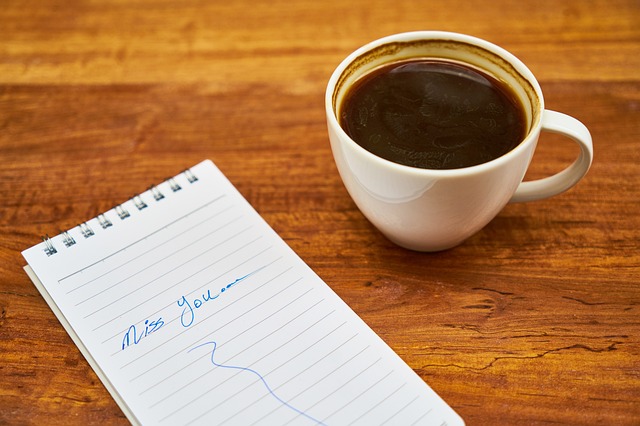 Miss You...